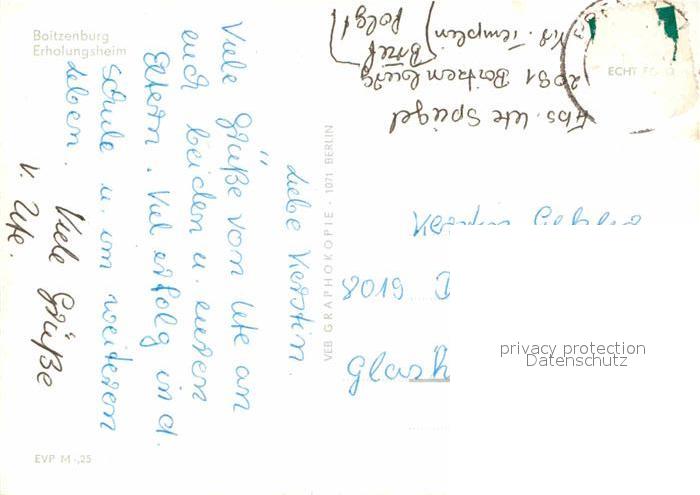 Boitzenburg
Erholungsheim
Liebe Kerstin.
Viele Grüße von Ute an
euch beiden u. euren
Eltern. Viel erfolg in d.
Schule u. im weiteren
Leben.
Viele Grüße
v. Ute.
EVP M -,25
VEB GRAPHOKOPIE · 1071 BERLIN
Abs. Ute Spiegel
2091 Boitzenburg
Templin
Brief
folgt!
ECHT FOTO
Kerstin
8019 D
Glash
privacy protection
Datenschutz